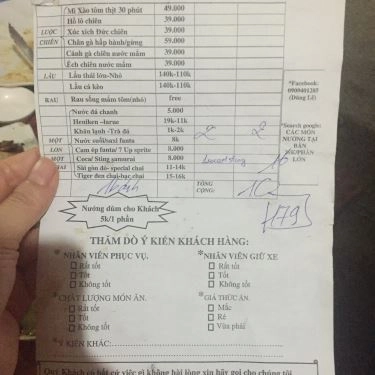 Mì Xào tôm thịt 30 phút 49.000
Hồ lô chiên 39.000
LUỘC Xúc xích Đức chiên 39.000
CHIÊN Chân gà hấp/hành/gừng 59.000
Cánh gà chiên nước mắm 39.000
Ếch chiên nước mắm 39.000
LẨU Lẩu thái lớn-Nhỏ 140k-110k
Lẩu cá kèo 140k-110k
RAU Rau sống mắm tôm(nhỏ) free
Nước đá chanh 5.000
Heniken -larue 19k-11k
Khăn lạnh -Trà đá 1k-2k 2 2
MỘT Nước suối/sami fanta 8k
LON Cam ép fanta/ 7 Up sprite 8.000
MỘT Coca/ Sting samurai 8.000
CHAI Sài gòn đỏ- special chai 11-14k
Tiger đen chai-bạc chai 15-16k
*Facebook:
0909401285
(Dũng Lê)
*Search google:
CÁC MÓN
NƯỚNG TẠI
BÀN
50K/PHẦN
LỚN
TỔNG
CỘNG:
179
Nướng dùm cho Khách
5k/1 phần
THĂM DÒ Ý KIẾN KHÁCH HÀNG:
*NHÂN VIÊN PHỤC VỤ.
Rất tốt
Tốt
Không tốt
*NHÂN VIÊN GIỮ XE
Rất tốt
Tốt
Không tốt
*CHẤT LƯỢNG MÓN ĂN.
Rất tốt
Tốt
Không tốt
*GIÁ THỨC ĂN.
Mắc
Rẻ
Vừa phải
*Ý KIẾN KHÁC:
Quý Khách có bất cứ việc gì không hài lòng xin hãy gọi cho chúng tôi